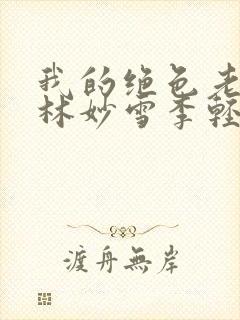 我的绝色老
林妙雪季轻
渡舟無岸